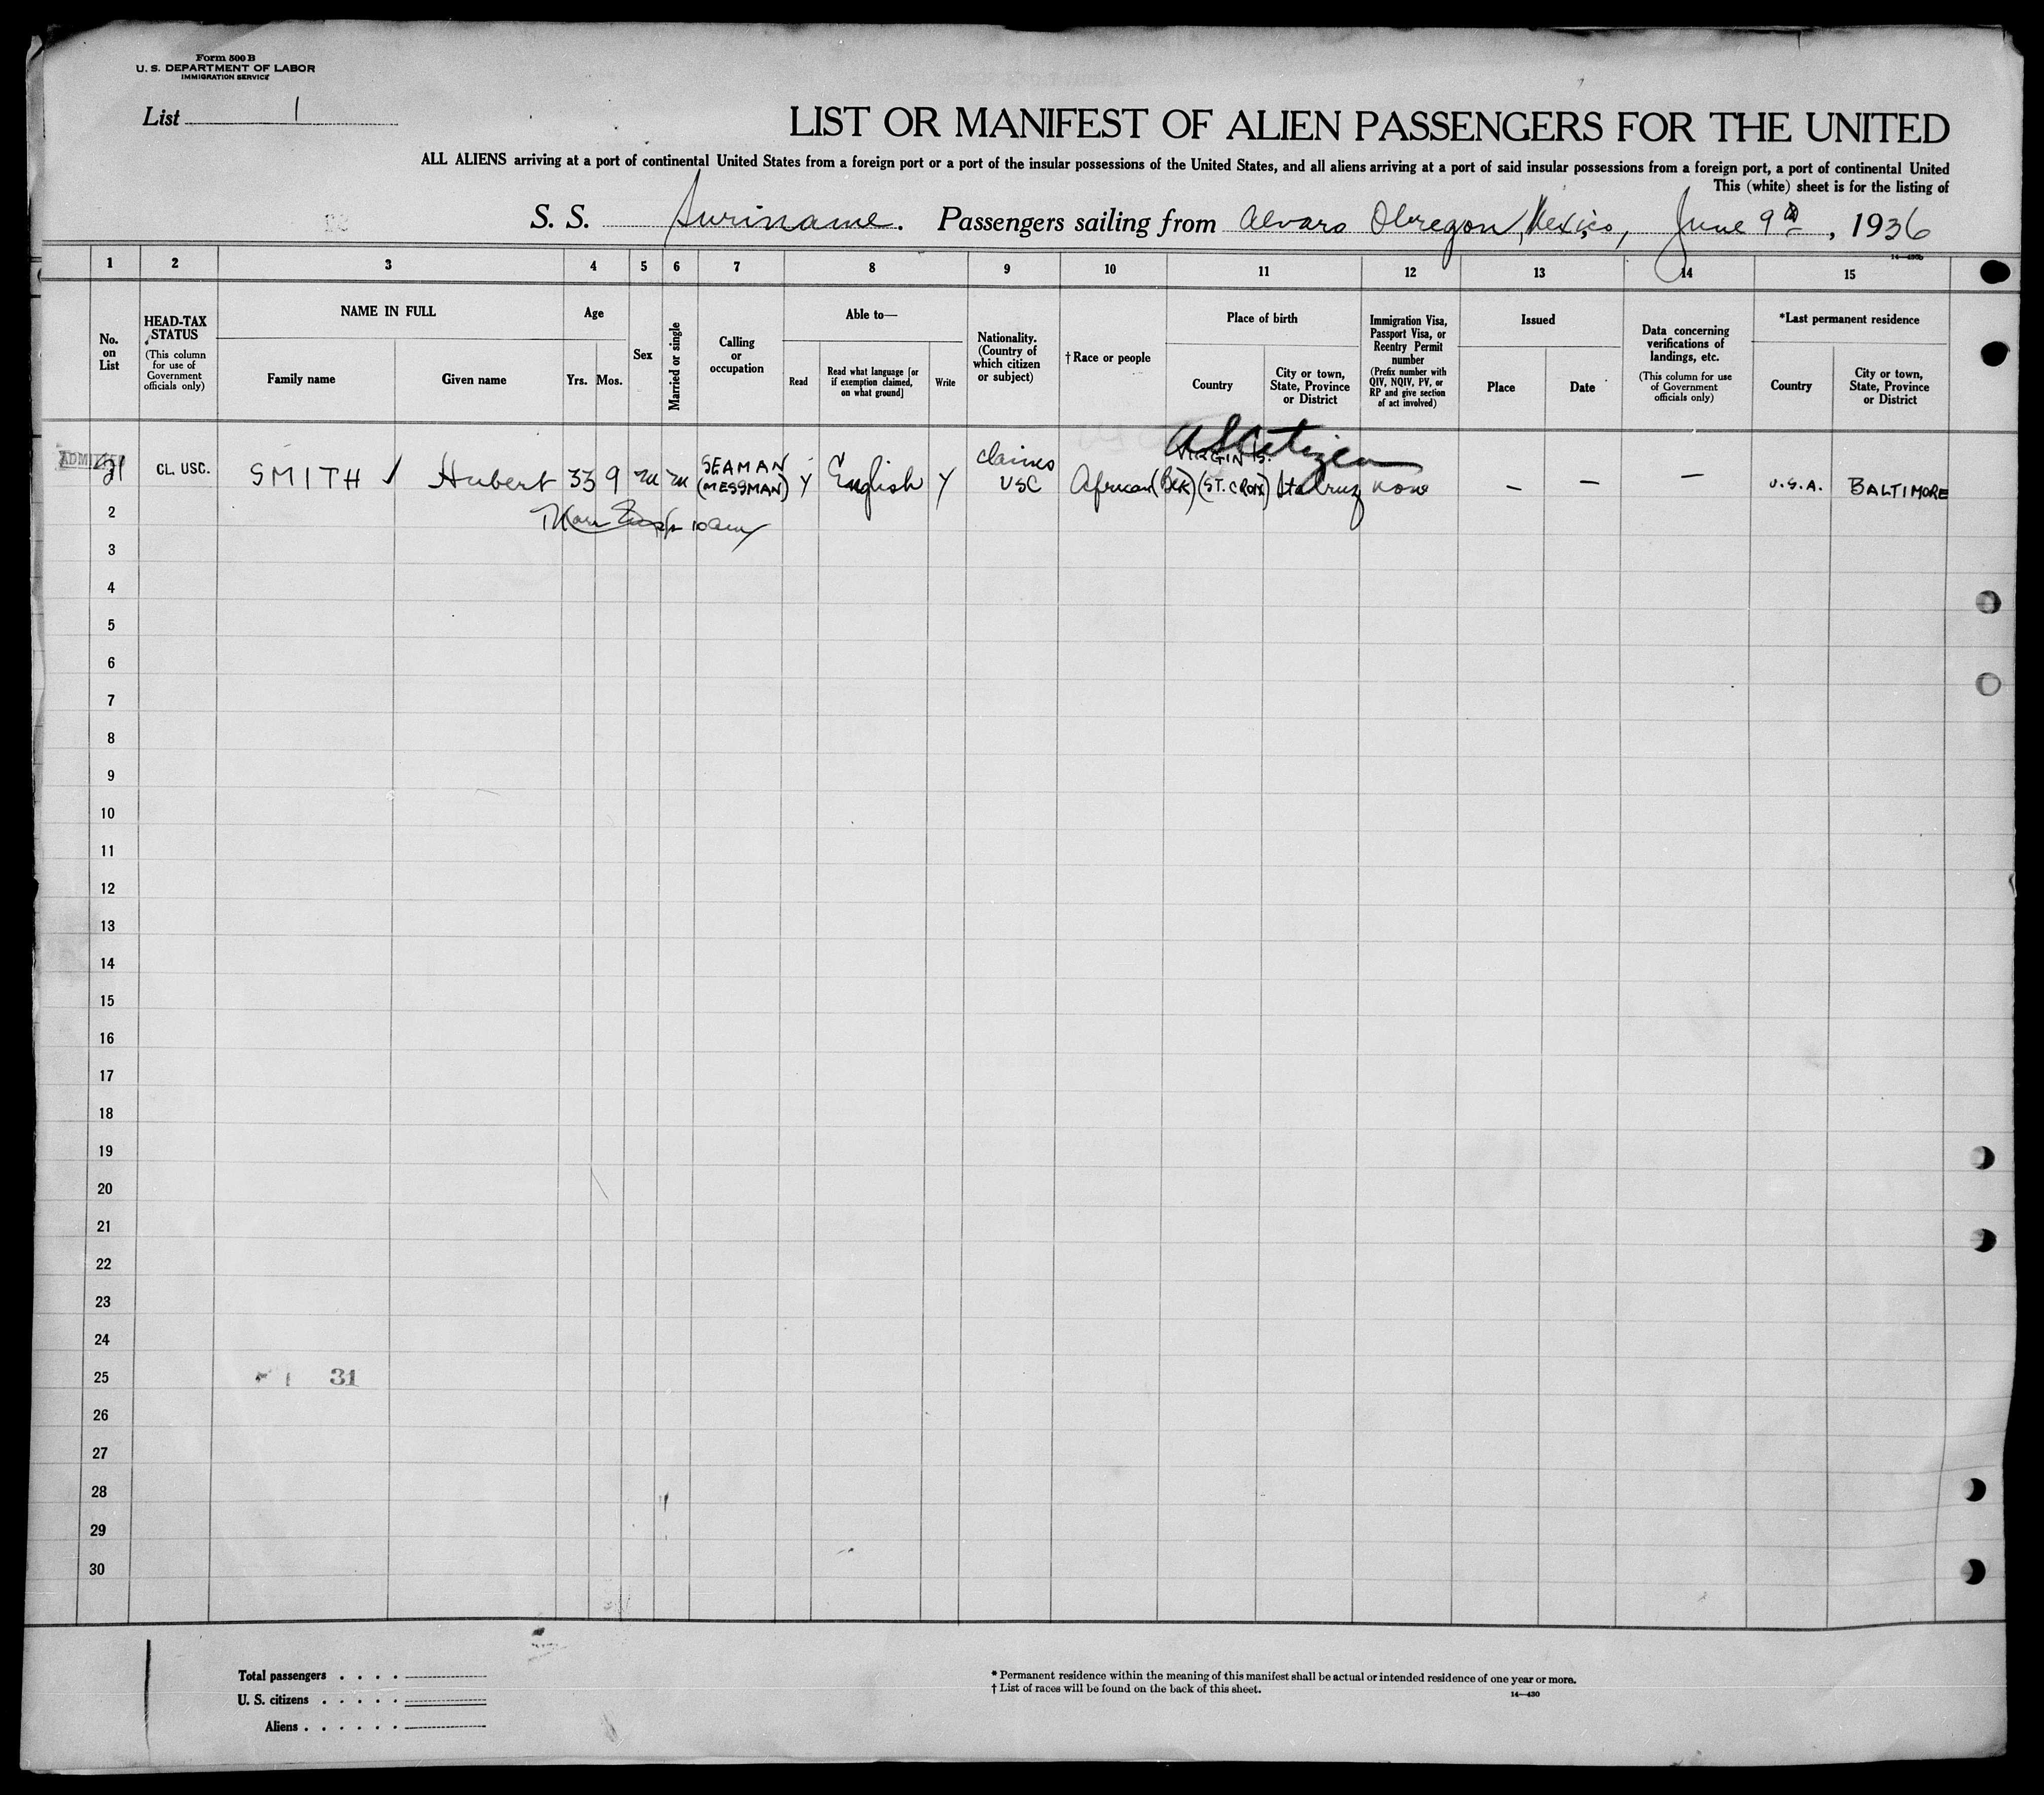 Form 500 B
U. S. DEPARTMENT OF LABOR
IMMIGRATION SERVICE
List 1
LIST OR MANIFEST OF ALIEN PASSENGERS FOR THE UNITED
ALL ALIENS arriving at a port of continental United States from a foreign port or a port of the insular possessions of the United States, and all aliens arriving at a port of said insular possessions from a foreign port, a port of continental United
This (white) sheet is for the listing of
S. S. Suriname. Passengers sailing from Alvaro Obregon, Mexico, June 9th, 1936
14—430b
1 2 3 4 5 6 7 8 9 10 11 12 13 14 15
No. on List
HEAD-TAX STATUS
(This column for use of Government officials only)
NAME IN FULL
Family name
Given name
Age
Yrs. Mos.
Sex
Married or single
Calling or occupation
Able to—
Read
Read what language [or if exemption claimed, on what ground]
Write
Nationality. (Country of which citizen or subject)
†Race or people
Place of birth
Country
City or town, State, Province or District
Immigration Visa, Passport Visa, or Reentry Permit number
(Prefix number with QIV, NQIV, PV, or RP and give section of act involved)
Issued
Place
Date
Data concerning verifications of landings, etc.
(This column for use of Government officials only)
*Last permanent residence
Country
City or town, State, Province or District
USCitizen
ADMITTED
1 CL. USC. SMITH Hubert 33 9 m m SEAMAN (MESSMAN) Y English Y claims USC African (Blk) VIRGIN IS. (ST. CROIX) Sta Cruz none — — — U.S.A. BALTIMORE
2 10am
3
4
5
6
7
8
9
10
11
12
13
14
15
16
17
18
19
20
21
22
23
24
25 31
26
27
28
29
30
Total passengers . . . .
U. S. citizens . . . . .
Aliens . . . . . .
* Permanent residence within the meaning of this manifest shall be actual or intended residence of one year or more.
† List of races will be found on the back of this sheet.
14—430